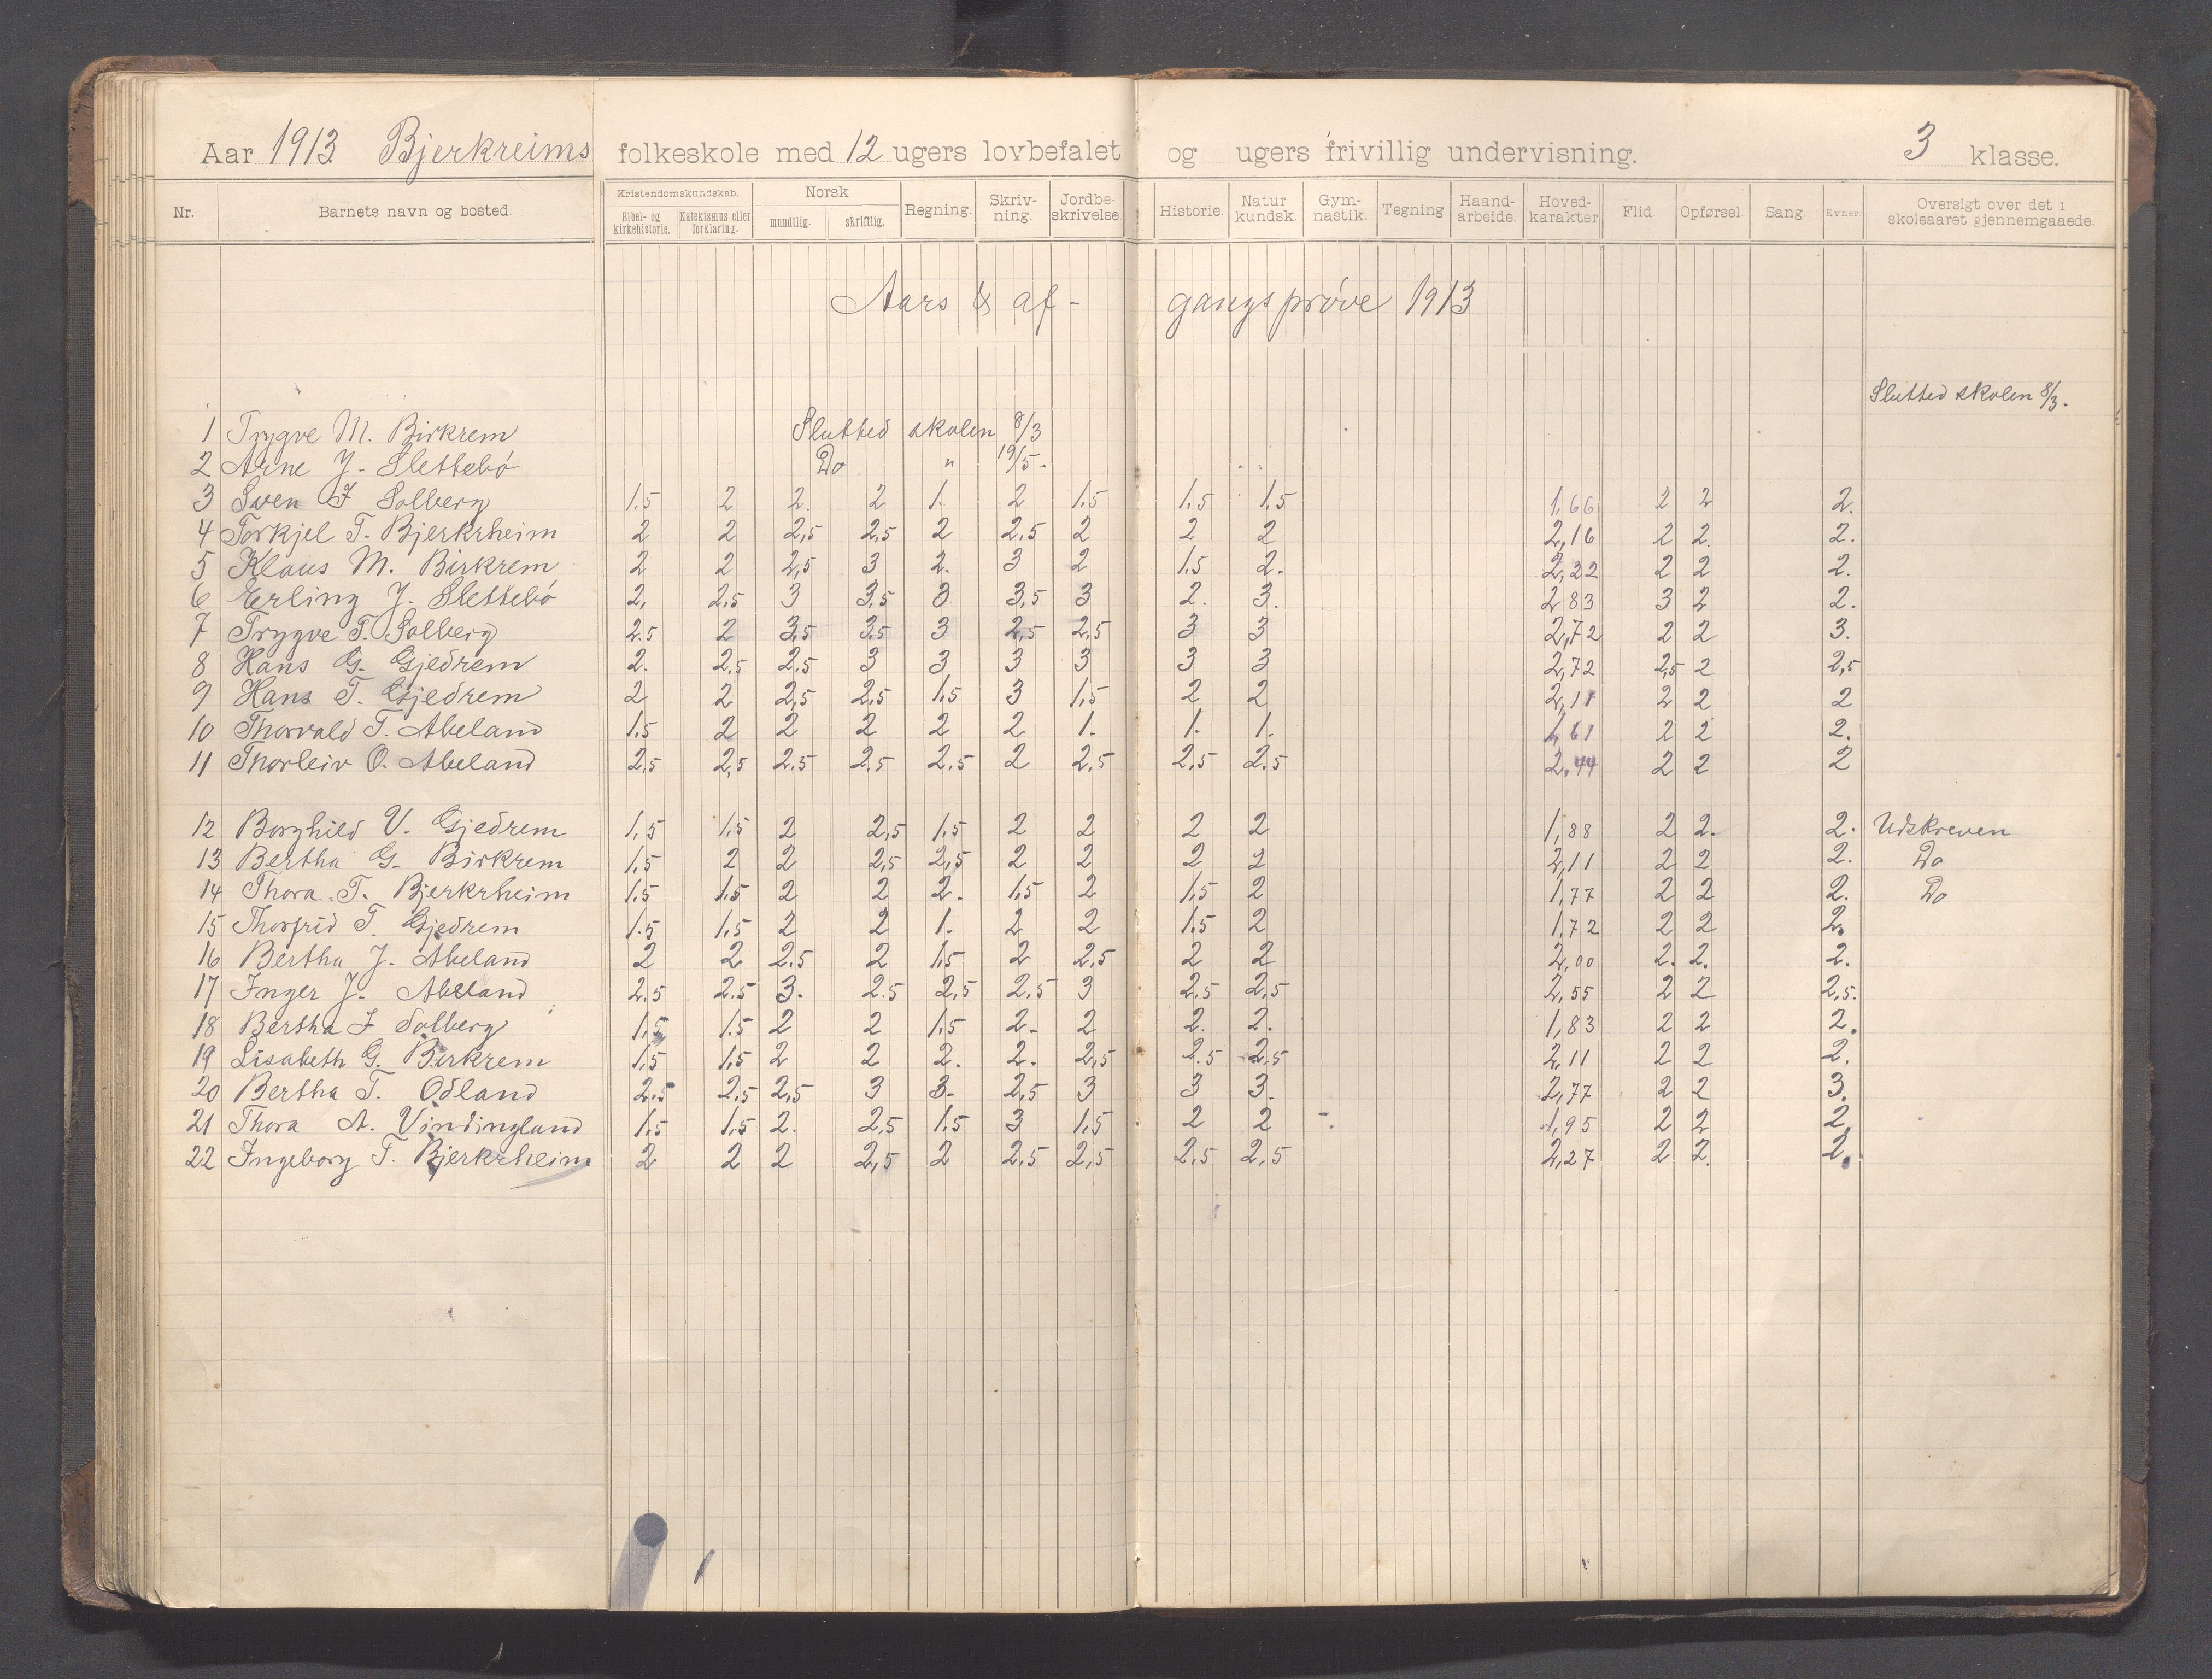 Aar 1913 Bjerkreims folkeskole med 12 ugers lovbefalet og ugers frivillig undervisning. 3 klasse.
Nr. Barnets navn og bosted. Kristendomskundskab. Bibel- og kirkehistorie. Katekismus eller forklaring. Norsk mundtlig. skriftlig. Regning. Skriv-ning. Jordbe-skrivelse. Historie. Natur kundsk. Gym-nastik. Tegning Haand-arbeide. Hoved-karakter Flid. Opførsel. Sang. Evner Oversigt over det i skoleaaret gjennemgaaede.
Aars & af- gangsprøve 1913
Slutted skolen 8/3.
1 Trygve M. Birkrem Slutted skolen 8/3
2 Arne J. Slettebö Do " 19/5.
3 Sven I Solberg 1.5 2 2. 2 1. 2 1.5 1.5 1.5 1,66 2 2 2.
4 Torkjel T. Bjerkrheim 2 2 2,5 2,5 2 2.5 2 2 2 2,16 2 2. 2.
5 Klaus M. Birkrem 2 2 2,5 3 2. 3 2 1.5 2. 2,22 2 2 2.
6 Erling J. Slettebö 2, 2,5 3 3,5 3 3,5 3 2. 3. 2 83 3 2 2.
7 Trygve T. Solberg 2.5 2 3,5 3.5 3 2,5 2,5 3 3 2,72 2 2 3.
8 Hans G. Gjedrem 2. 2,5 2,5 3 3 3 3 3 3 2,72 2,5 2 2,5
9 Hans T. Gjedrem 2 2 2,5 2,5 1,5 3 1,5 2 2 2,11 2 2 2
10 Thorvald T. Abeland 1.5 2 2 2 2 2 1. 1. 1. 1,61 2 2 2.
11 Thorleiv O. Abeland 2,5 2,5 2.5 2.5 2.5 2 2,5 2,5 2.5 2,44 2 2 2
12 Borghild V. Gjedrem 1,5 1.5 2 2,5 1.5 2 2 2 2 1,88 2 2. 2. Udskreven
13 Bertha G. Birkrem 1,5 2 2 2,5 2,5 2 2 2 2 2,11 2 2 2. Do
14 Thora T. Bjerkrheim 1.5 1.5 2 2 2. 1.5 2 1,5 2 1,77 2 2 2. Do
15 Thorfrid T. Gjedrem 1.5 1,5 2 2 1. 2 2 1.5 2 1,72 2 2 2.
16 Bertha J. Abeland 2 2 2.5 2 1.5 2 2,5 2 2 2,00 2. 2. 2.
17 Inger J. Abeland 2.5 2.5 3. 2.5 2,5 2.5 3 2.5 2,5 2,55 2 2 2,5.
18 Bertha I Solberg 1,5 1.5 2 2 1.5 2. 2 2. 2. 1,83 2 2 2.
19 Lisabeth G. Birkrem 1,5 1,5 2 2 2. 2. 2,5 2.5 2.5 2,11 2 2 2.
20 Bertha T. Odland 2.5 2,5 2,5 3 3. 2,5 3 3 3. 2,77 2 2 3.
21 Thora A. Vindingland 1.5 1.5 2. 2,5 1.5 3 1,5 2 2 1,95 2 2 2,
22 Ingeborg T. Bjerkrheim 2 2 2 2,5 2 2.5 2,5 2,5 2,5 2,27 2 2. 2.